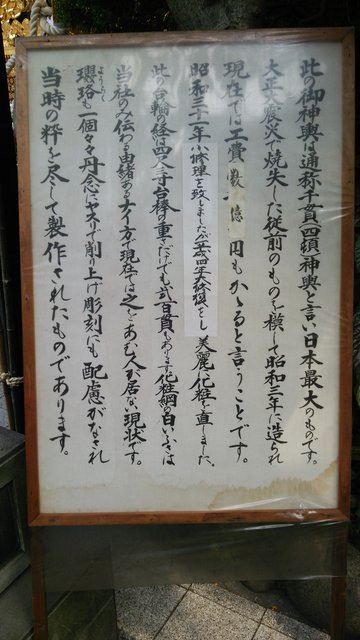 此の御神輿は通称千貫四頭神輿と言い日本最大のものです。
大正大震災で焼失した従前のものを模して昭和三年に造られ
現在では工費 数 億 円もかゝると言うことです。
昭和三十一年小修理を致しましたが平成四年大修復をし美麗に化粧を直しました、
此の台輪の経は四尺八寸台棒の重さだけでも弐百貫もあります化粧綱の白いふさは
当社のみ伝わる由緒あるナイ方で現在では之をあむ人が居ない現状です。
ようらく
瓔珞も一個々々丹念にヤスリで削り上げ彫刻にも配慮がなされ
当時の粋を尽して製作されたものであります。